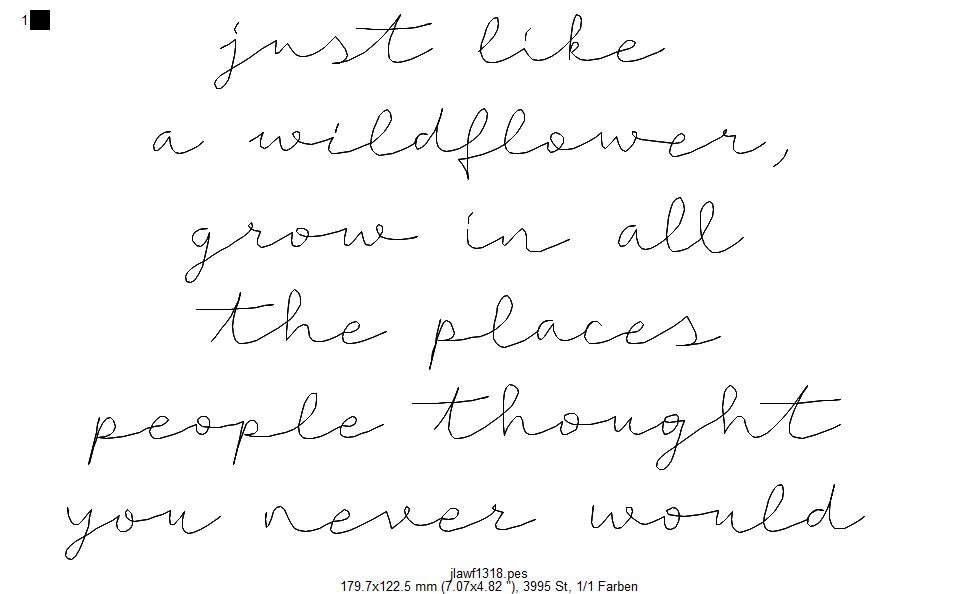 1
just like
a wildflower,
grow in all
the places
people thought
you never would
jlawf1318.pes
179.7x122.5 mm (7.07x4.82 "), 3995 St, 1/1 Farben